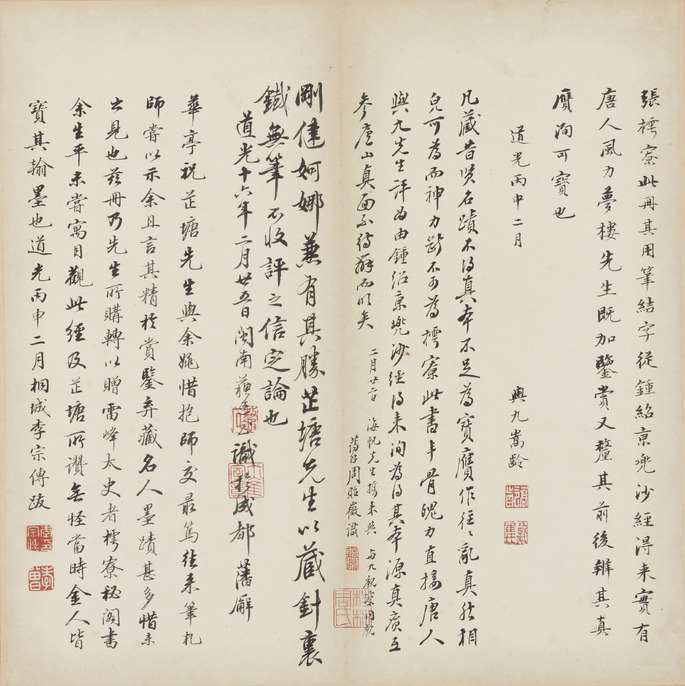 張樗寮此冊其用筆結字從鍾紹京兜沙經得來實有
唐人風力夢樓先生既加鑒賞又釐其前後辨其真
贋洵可寶也
道光丙申二月
與九嵩齡
凡藏昔賢名蹟不得真本不足為寶贋作往往亂真然相
皃可為而神力斷不可為樗寮此書丰骨魄力直摹唐人
與九先生評為由鍾紹京兜沙經得來洵為得其本源真贋互
參廬山真面不待辯而明矣
二月廿二日 海帆先生携來與 與九觀察同觀
周貽徽識
剛健婀娜兼有其勝芷塘先生以藏針裏
鐵無筆不收評之信定論也
道光十六年二月廿五日閩南蘇 識於成都藩廨
華亭祝芷塘先生與余姚惜抱師交最篤往來筆札
師嘗以示余且言其精於賞鑒弆藏名人墨蹟甚多惜未
之見也茲冊乃先生所購轉以贈雷峰太史者樗寮秘閣書
余生平未嘗寓目觀此經及芷塘所讚無怪當時金人皆
寶其翰墨也道光丙申二月桐城李宗傳跋